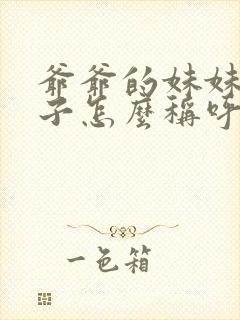 爺爺的妹妹
子怎麼稱呼
一色箱